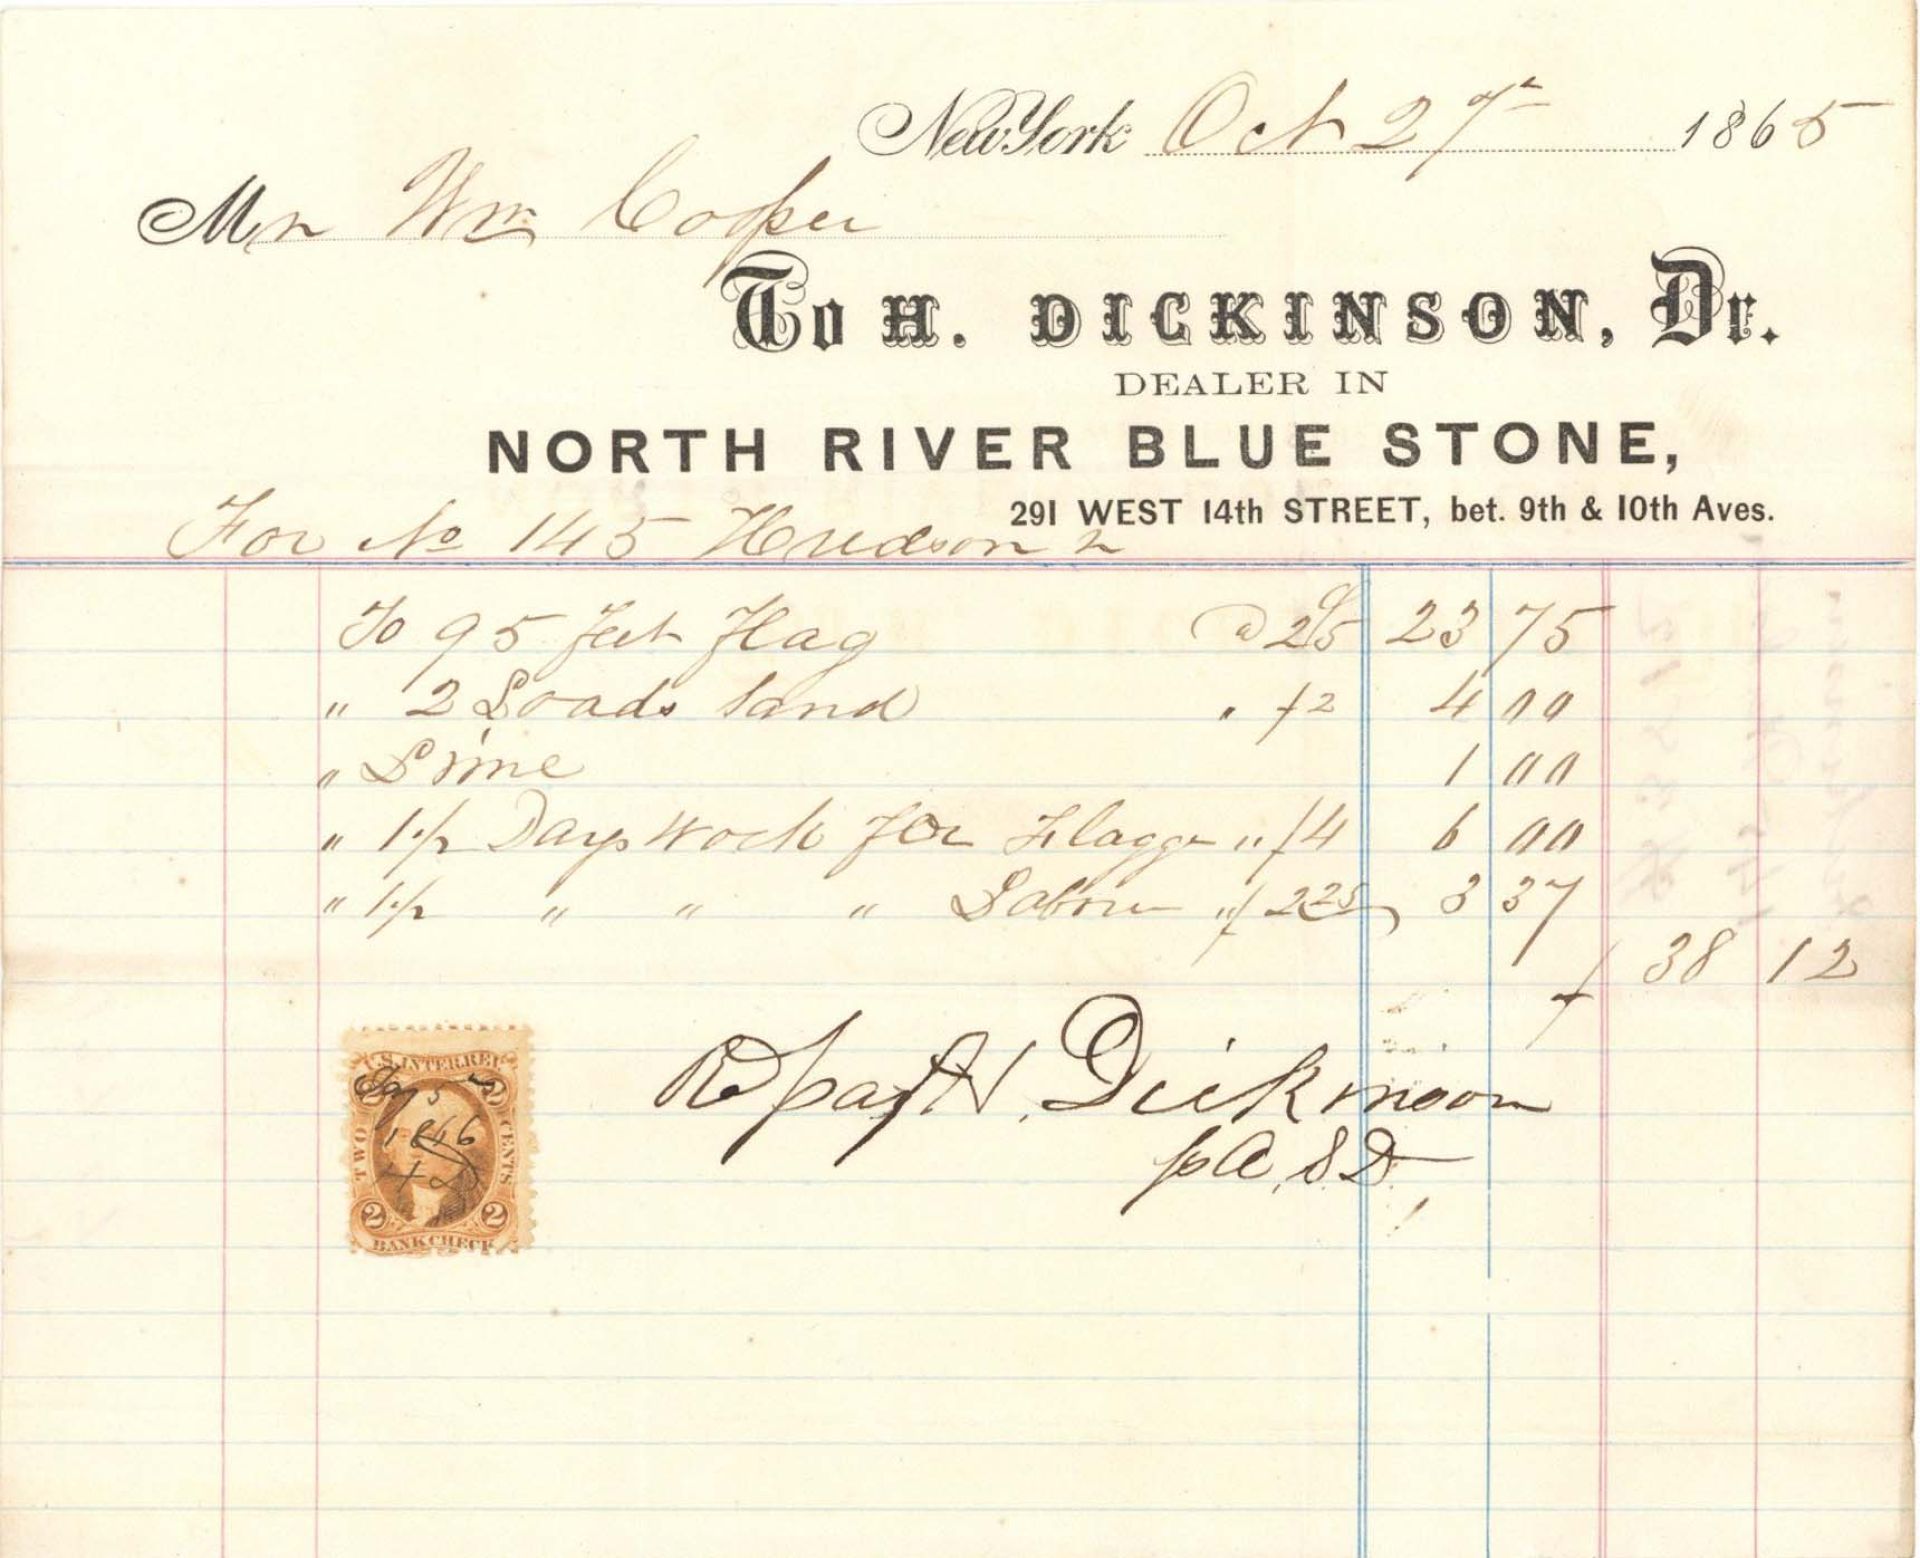 New York Oct 27th 1865
Mr Wm Cooper
To H. DICKINSON, Dr.
DEALER IN
NORTH RIVER BLUE STONE,
291 WEST 14th STREET, bet. 9th & 10th Aves.
For No 145 Hudson
To 95 feet Flag @ 25 23 75
" 2 Loads Sand " $2 4 00
" Lime 1 00
" 1 1/2 Days Work for Flagger " $4 6 00
" 1 1/2 " " " Labour " $2 25 3 37
$ 38 12
Rd payt H. Dickinson
p A. S. D.
U.S. INTER. REV.
5
1866
H D
TWO CENTS
2 2 2 2
BANK CHECK